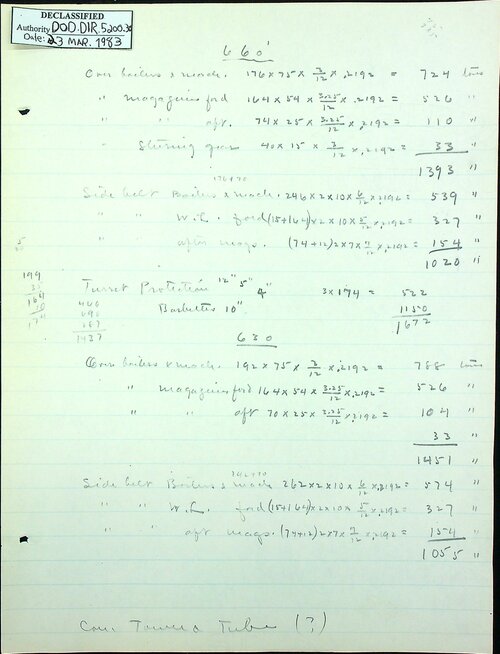 DECLASSIFIED
Authority DOD.DIR.5200.30
Date: 23 MAR. 1983
660'
Over boilers & mach. 176 x 75 x 3/12 x .2192 = 724 tons
" magazines for'd 164 x 54 x 3.25/12 x .2192 = 526 "
" " aft. 74 x 25 x 3.25/12 x .2192 = 110 "
" Steering gear 40 x 15 x 3/12 x .2192 = 33 "
1393 "
176+70
Side belt Boilers & mach. 246 x 2 x 10 x 6/12 x .2192 = 539 "
" " W.L. for'd (15+164) x 2 x 10 x 5/12 x .2192 = 327 "
" " after mags. (74+12) 2 x 7 x 7/12 x .2192 = 154 "
1020 "
199
164
10
174
Turret Protection 12" 5" 4" 3 x 174 = 522
Barbettes 10" 1150
1672
460
690
287
1437
630
Over boilers & mach. 192 x 75 x 3/12 x .2192 = 788 tons
" magazines for'd 164 x 54 x 3.25/12 x .2192 = 526 "
" " aft 70 x 25 x 3.25/12 x .2192 = 104 "
33 "
1451 "
192+70
Side belt Boilers & mach 262 x 2 x 10 x 6/12 x .2192 = 574 "
" " W.L. for'd (15+164) x 2 x 10 x 5/12 x .2192 = 327 "
" " aft mags. (74+12) 2 x 7 x 7/12 x .2192 = 154 "
1055 "
Conn Tower & Tube (?)